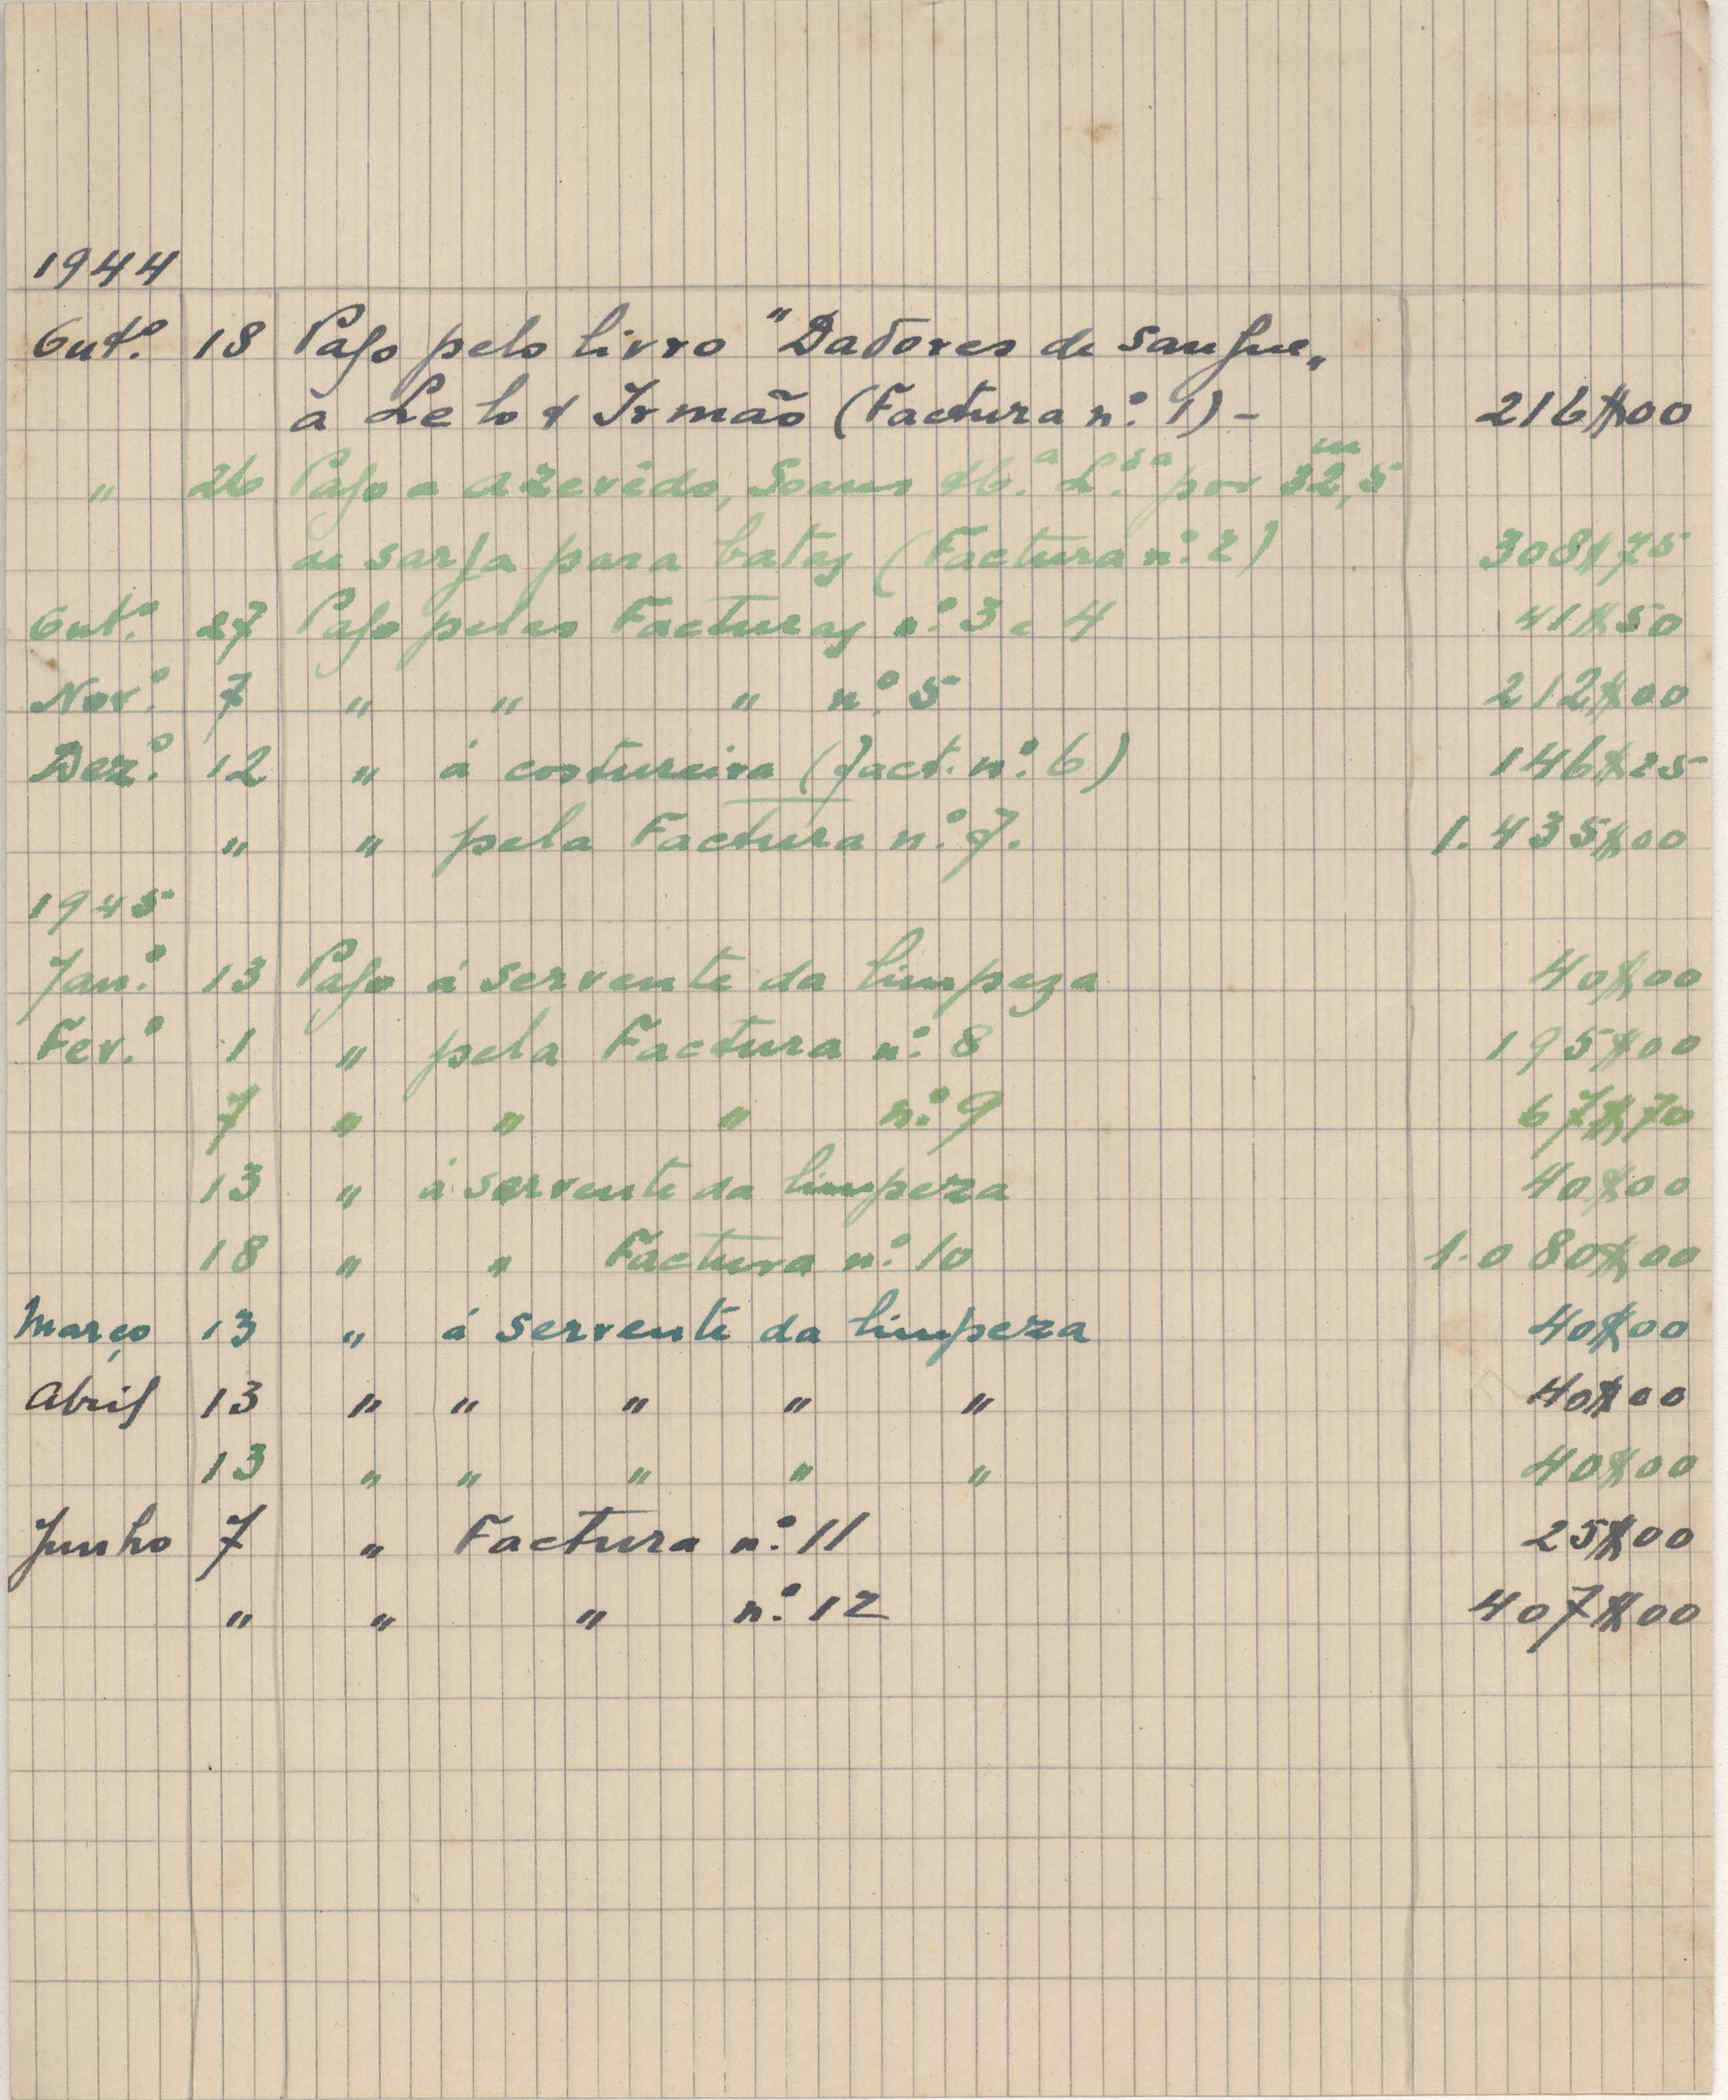 1944
Out.º 18 Pago pelo livro "Dadores de sangue„
à Lelo & Irmão (Factura n.º 1) - 216$00
" 26 Pago a Azevêdo, Soares & C.ª L.da por 32,5 m
de sarja para batas (Factura n.º 2) 308$75
Out.º 27 Pago pelas Facturas n.º 3 e 4 41$50
Nov.º 7 " " " n.º 5 212$00
Dez.º 12 " á costureira (fact. n.º 6) 146$25
" " pela Factura n.º 7. 1.435$00
1945
Jan.º 13 Pago á servente da limpeza 40$00
Fev.º 1 " pela Factura n.º 8 195$00
7 " " " n.º 9 67$70
13 " á servente da limpeza 40$00
18 " " Factura n.º 10 1.080$00
Março 13 " á servente da limpeza 40$00
Abril 13 " " " " " 40$00
13 " " " " " 40$00
Junho 7 " Factura n.º 11 25$00
" " " n.º 12 407$00